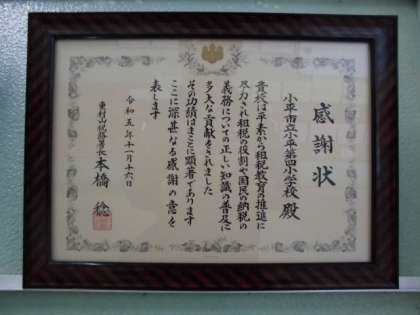 感謝状
小平市立小平第四小学校 殿
貴校は平素から租税教育の推進に
尽力され租税の役割や国民の納税の
義務についての正しい知識の普及に
多大な貢献をされました
その功績はまことに顕著であります
ここに深甚なる感謝の意を
表します
令和五年十一月十六日
東村山税務署長 本橋 稔